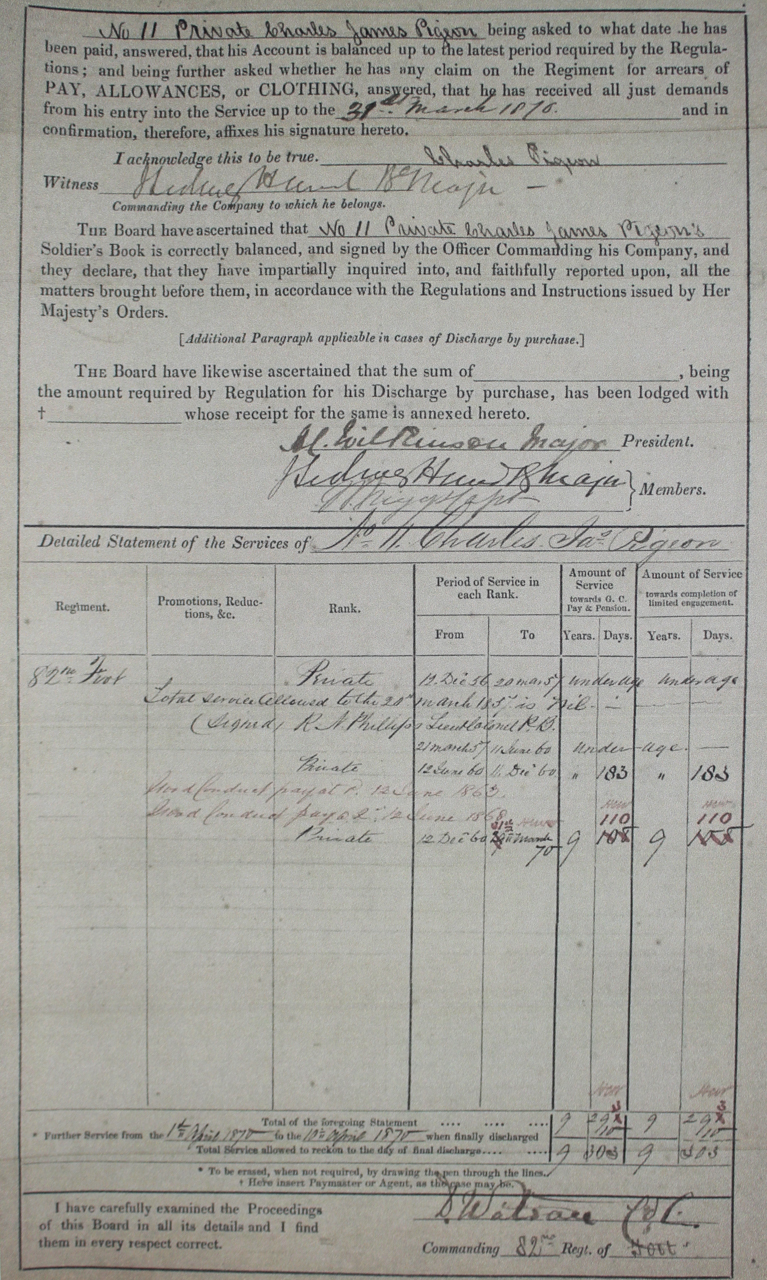 No 11 Private Charles James Pigeon being asked to what date he has
been paid, answered, that his Account is balanced up to the latest period required by the Regula-
tions; and being further asked whether he has any claim on the Regiment for arrears of
PAY, ALLOWANCES, or CLOTHING, answered, that he has received all just demands
from his entry into the Service up to the 31st March 1870. and in
confirmation, therefore, affixes his signature hereto.
I acknowledge this to be true. Charles Pigeon
Witness Hunt Bt Major
Commanding the Company to which he belongs.
THE Board have ascertained that No 11 Private Charles James Pigeon's
Soldier's Book is correctly balanced, and signed by the Officer Commanding his Company, and
they declare, that they have impartially inquired into, and faithfully reported upon, all the
matters brought before them, in accordance with the Regulations and Instructions issued by Her
Majesty's Orders.
[Additional Paragraph applicable in cases of Discharge by purchase.]
THE Board have likewise ascertained that the sum of , being
the amount required by Regulation for his Discharge by purchase, has been lodged with
† whose receipt for the same is annexed hereto.
Wilkinson Major President.
Hunt Bt Major
Capt Members.
Detailed Statement of the Services of No 11 Charles Jas Pigeon
Regiment. Promotions, Reduc-tions, &c. Rank. Period of Service in each Rank. Amount of Service towards G. C. Pay & Pension. Amount of Service towards completion of limited engagement.
From To Years. Days. Years. Days.
82nd Foot Private 12 Dec 56 20 Mar 57 under age under age
Total service allowed to the 20th March 1857 is Nil
(Signed) R N Phillips Lieut Colonel
21 March 57 11 June 60 under age
Private 12 June 60 11 Dec 60 " 183 " 183
Good Conduct pay at 1d. 12 June 1863.
Good Conduct pay @ 2d. 12 June 1868 110 110
Private 12 Dec 60 31st March 70 9 108 9 108
Total of the foregoing Statement .... .... .... 9 293 9 293
* Further Service from the 1st April 1870 to the 10th April 1870 when finally discharged 10 10
Total Service allowed to reckon to the day of final discharge 9 303 9 303
* To be erased, when not required, by drawing the pen through the lines.
† Here insert Paymaster or Agent, as the case may be.
I have carefully examined the Proceedings
of this Board in all its details and I find
them in every respect correct.
Watson Col.
Commanding 82nd Regt. of Foot